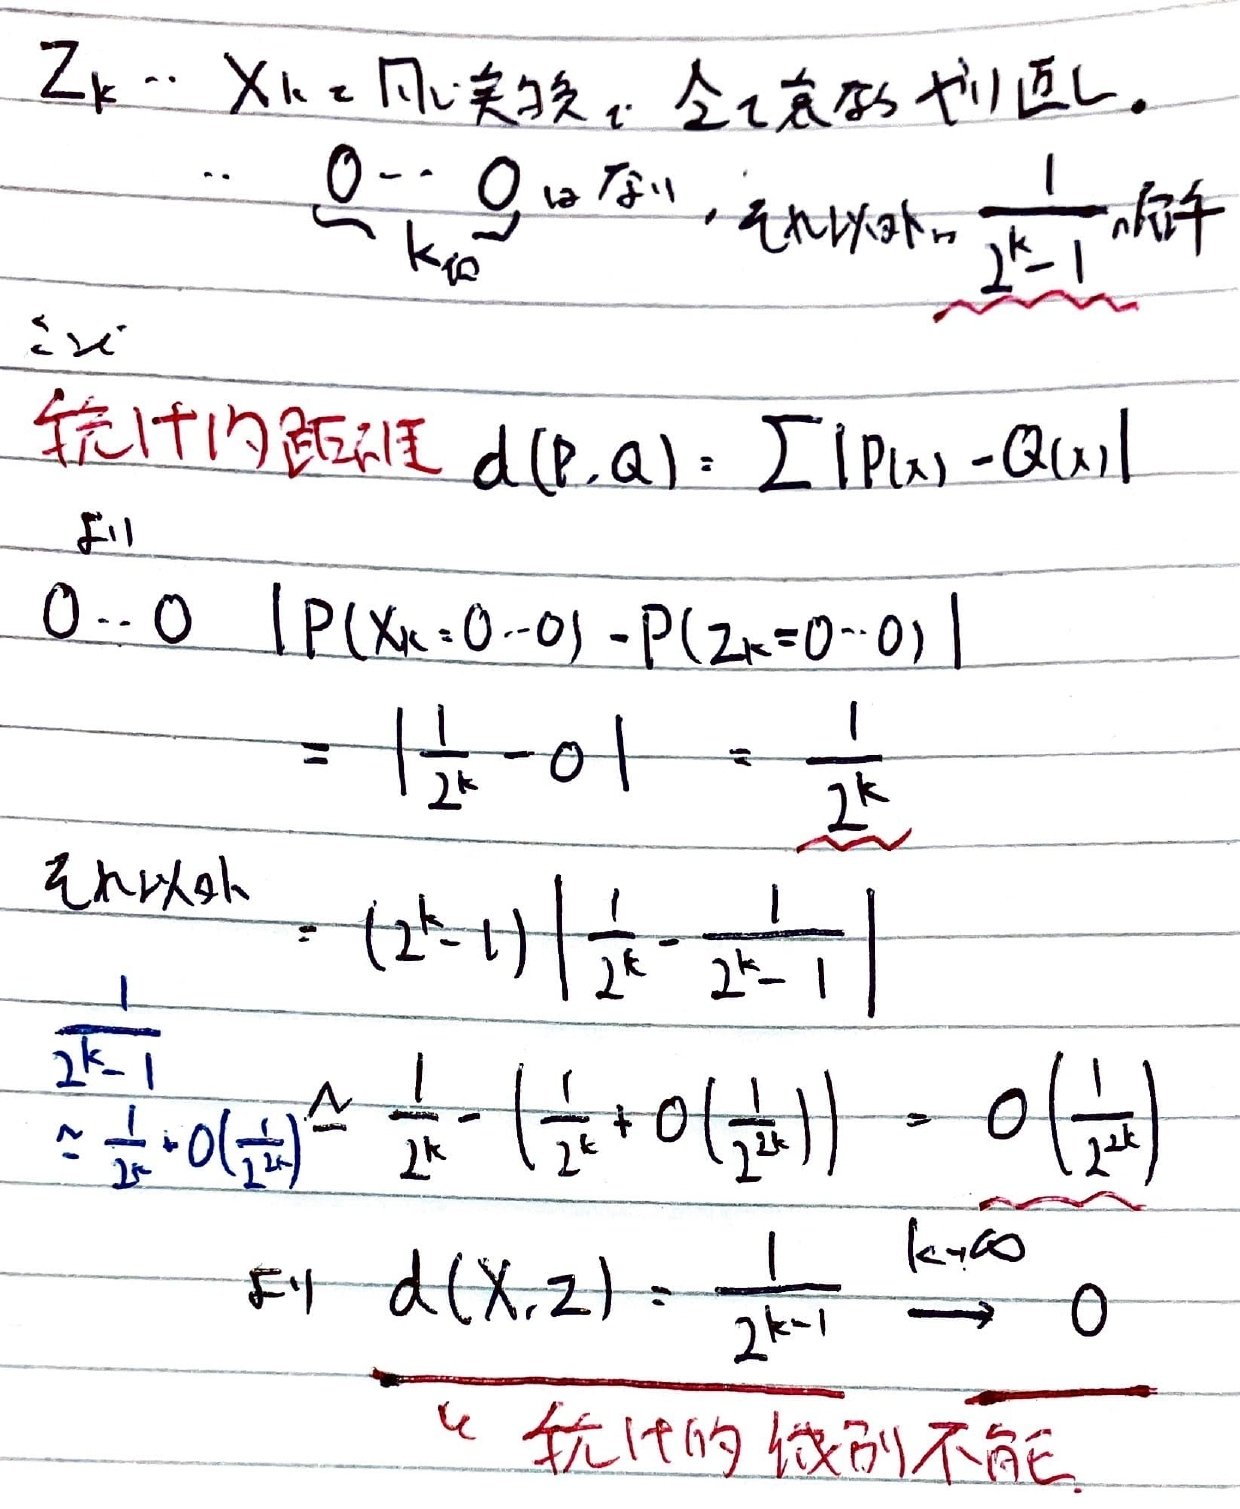 Zk ‥ Xkと同じ実験で 全て裏なら やり直し。
‥ 0…0 はない, それ以外は 1/(2^k-1) の確率
k個
ここで
統計的距離 d(P,Q) = Σ|P(x)-Q(x)|
より
0…0 |P(Xk=0…0)-P(Zk=0…0)|
= |1/2^k - 0| = 1/2^k
それ以外
= (2^k-1)|1/2^k - 1/(2^k-1)|
1/(2^k-1)
≃ 1/2^k + O(1/2^2k) ≃ 1/2^k - (1/2^k + O(1/2^2k)) = O(1/2^2k)
より d(X,Z) = 1/2^(k-1) k→∞ → 0
統計的識別不能.